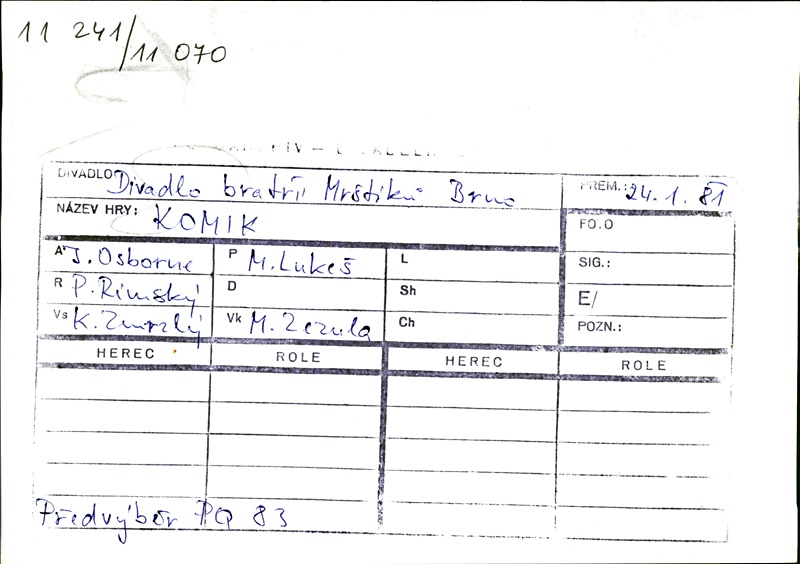 11 241/11 070
DIVADLO: Divadlo bratří Mrštíků Brno PREM.: 24.1.81
NÁZEV HRY: KOMIK FO.O
A J. Osborne P M. Lukeš L SIG.:
R P. Rímský D Sh E/
Vs K. Zmrzlý Vk M. Zezula Ch POZN.:
HEREC ROLE HEREC ROLE
Předvýběr PQ 83